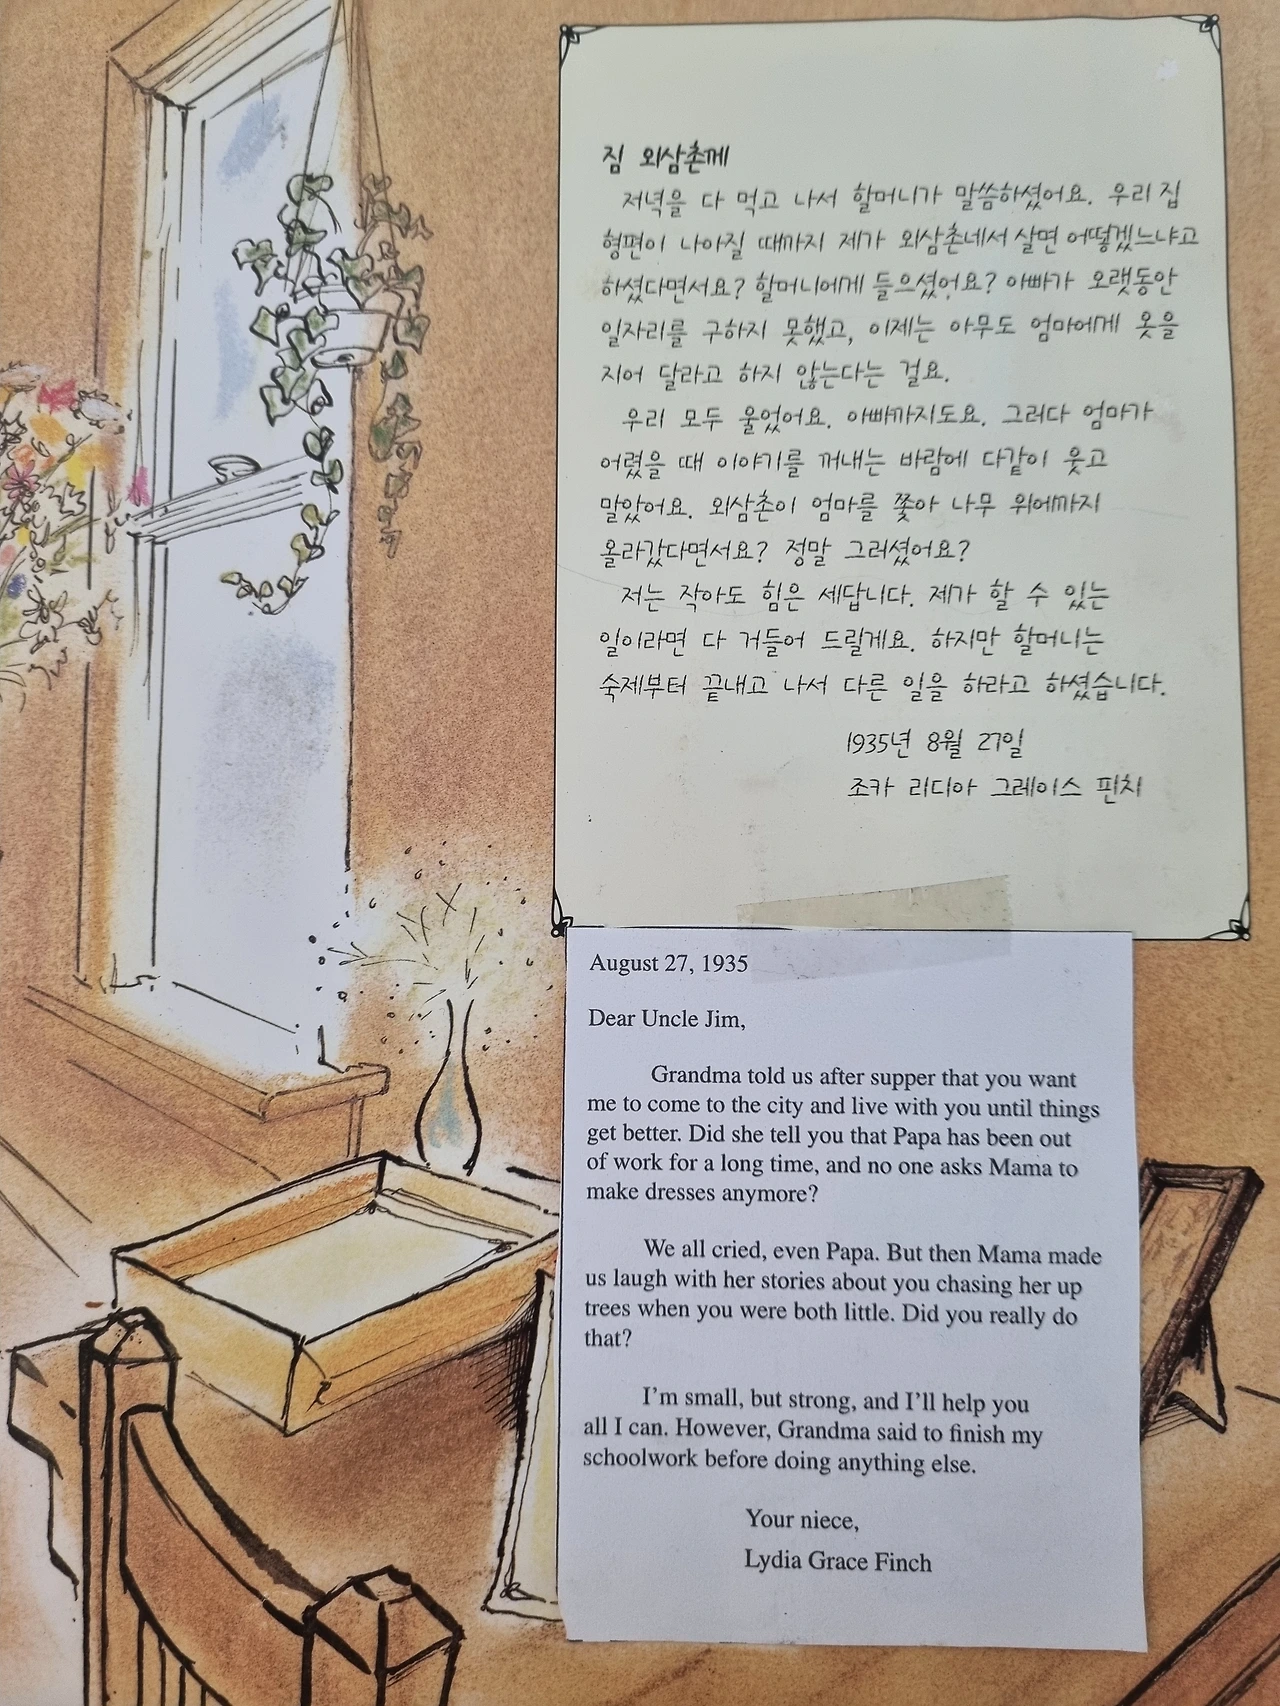 짐 외삼촌께
저녁을 다 먹고 나서 할머니가 말씀하셨어요. 우리 집
형편이 나아질 때까지 제가 외삼촌네서 살면 어떻겠느냐고
하셨다면서요? 할머니에게 들으셨어요? 아빠가 오랫동안
일자리를 구하지 못했고, 이제는 아무도 엄마에게 옷을
지어 달라고 하지 않는다는 걸요.
우리 모두 울었어요. 아빠까지도요. 그러다 엄마가
어렸을 때 이야기를 꺼내는 바람에 다같이 웃고
말았어요. 외삼촌이 엄마를 쫓아 나무 위에까지
올라갔다면서요? 정말 그러셨어요?
저는 작아도 힘은 세답니다. 제가 할 수 있는
일이라면 다 거들어 드릴게요. 하지만 할머니는
숙제부터 끝내고 나서 다른 일을 하라고 하셨습니다.
1935년 8월 27일
조카 리디아 그레이스 핀치
August 27, 1935
Dear Uncle Jim,
Grandma told us after supper that you want
me to come to the city and live with you until things
get better. Did she tell you that Papa has been out
of work for a long time, and no one asks Mama to
make dresses anymore?
We all cried, even Papa. But then Mama made
us laugh with her stories about you chasing her up
trees when you were both little. Did you really do
that?
I'm small, but strong, and I'll help you
all I can. However, Grandma said to finish my
schoolwork before doing anything else.
Your niece,
Lydia Grace Finch